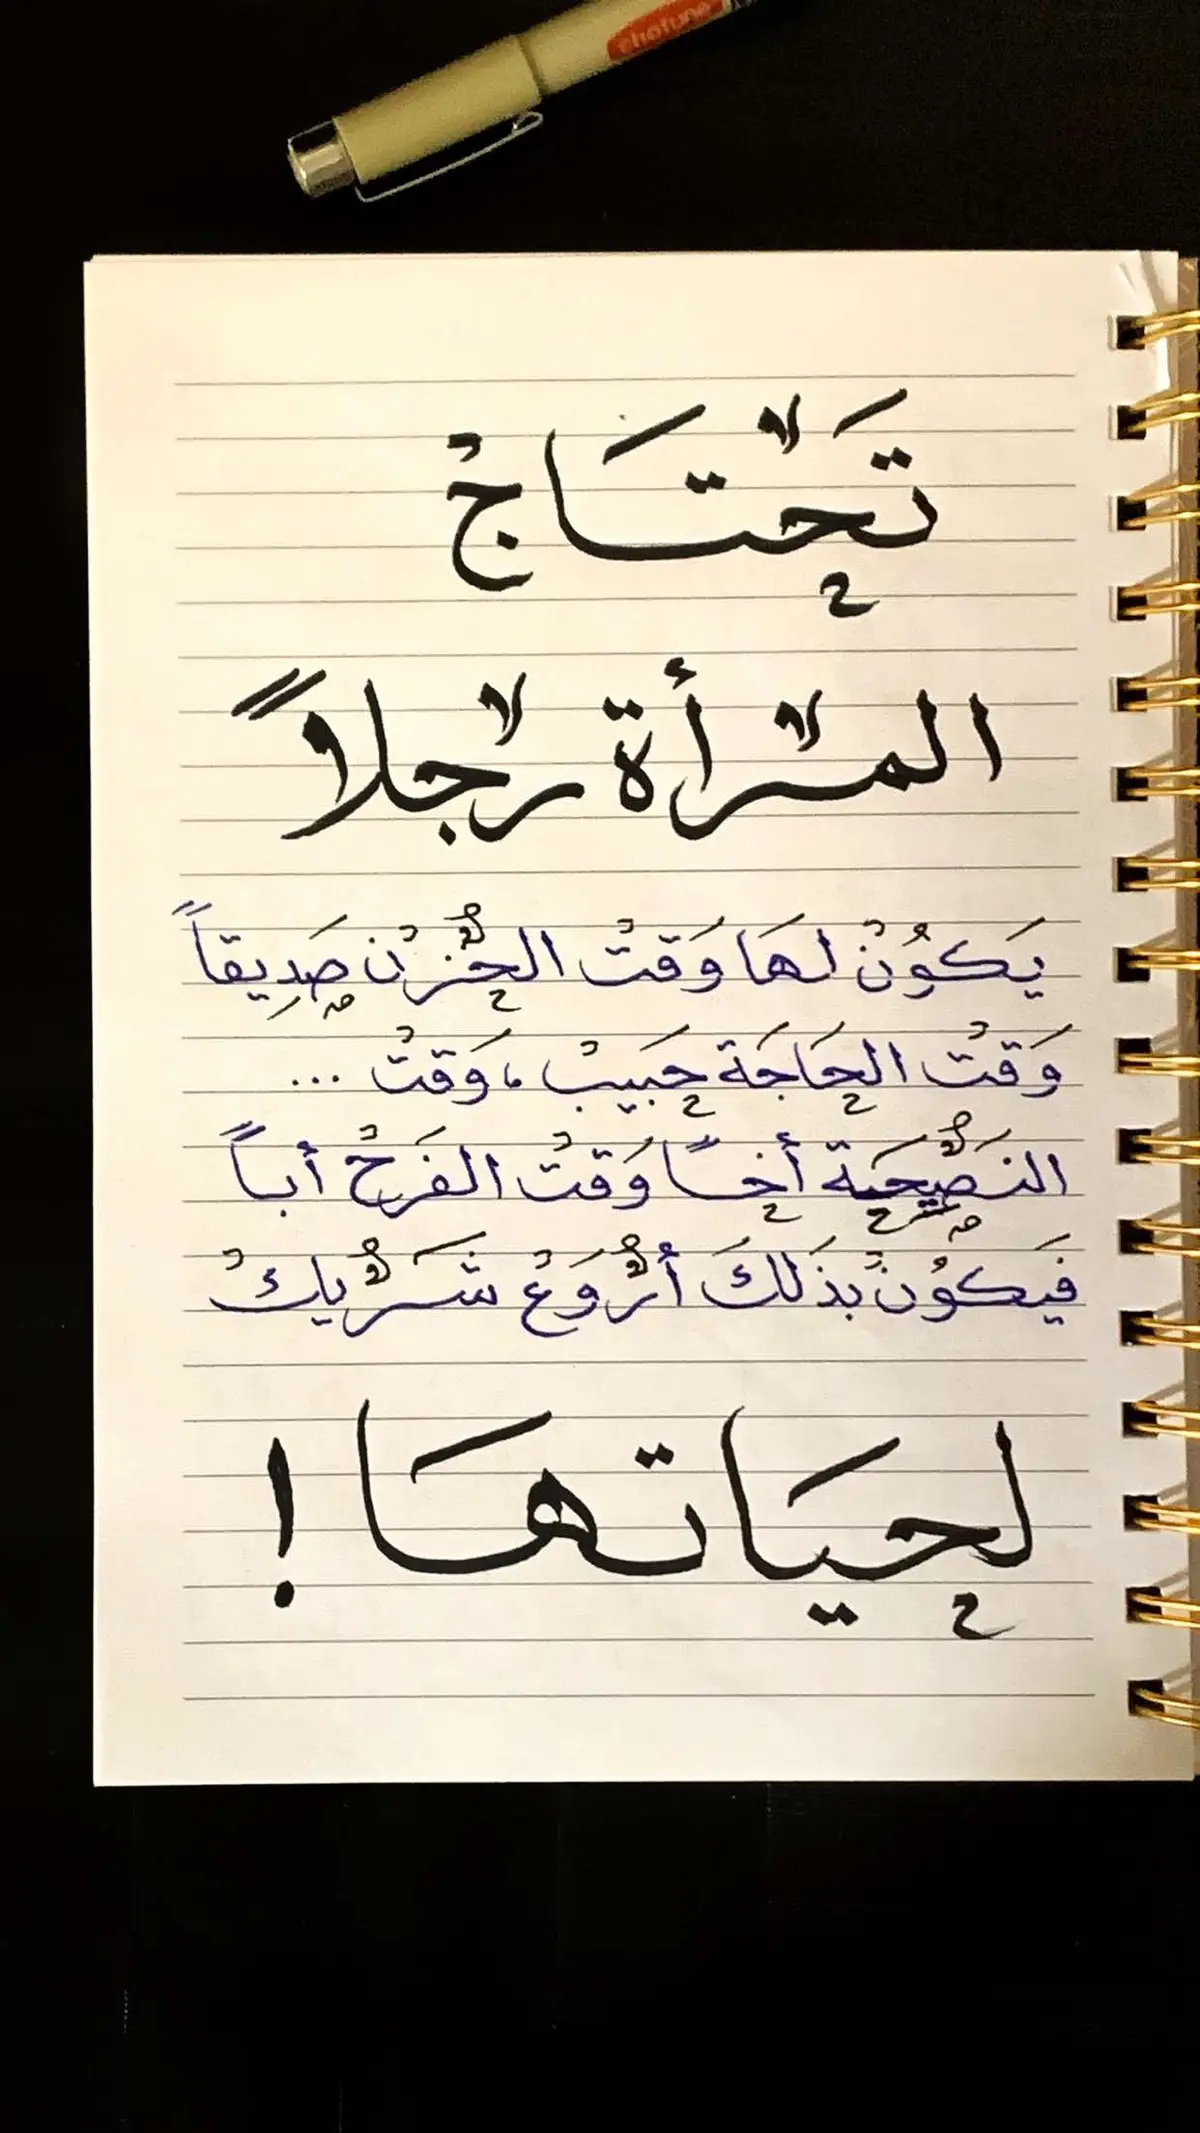 تَحتَاجُ
المرأة رجلاً
يَكُونُ لهَا وَقتُ الحُزنُ صَدِيقاً
وَقتُ الحَاجَة حَبيبُ ، وَقتُ ...
النَصِيحَة أخاً وَقتُ الفَرَحُ أباً
فيَكوُنُ بذَلكَ أروَعُ شَريكُ
لحيَاتهَا !